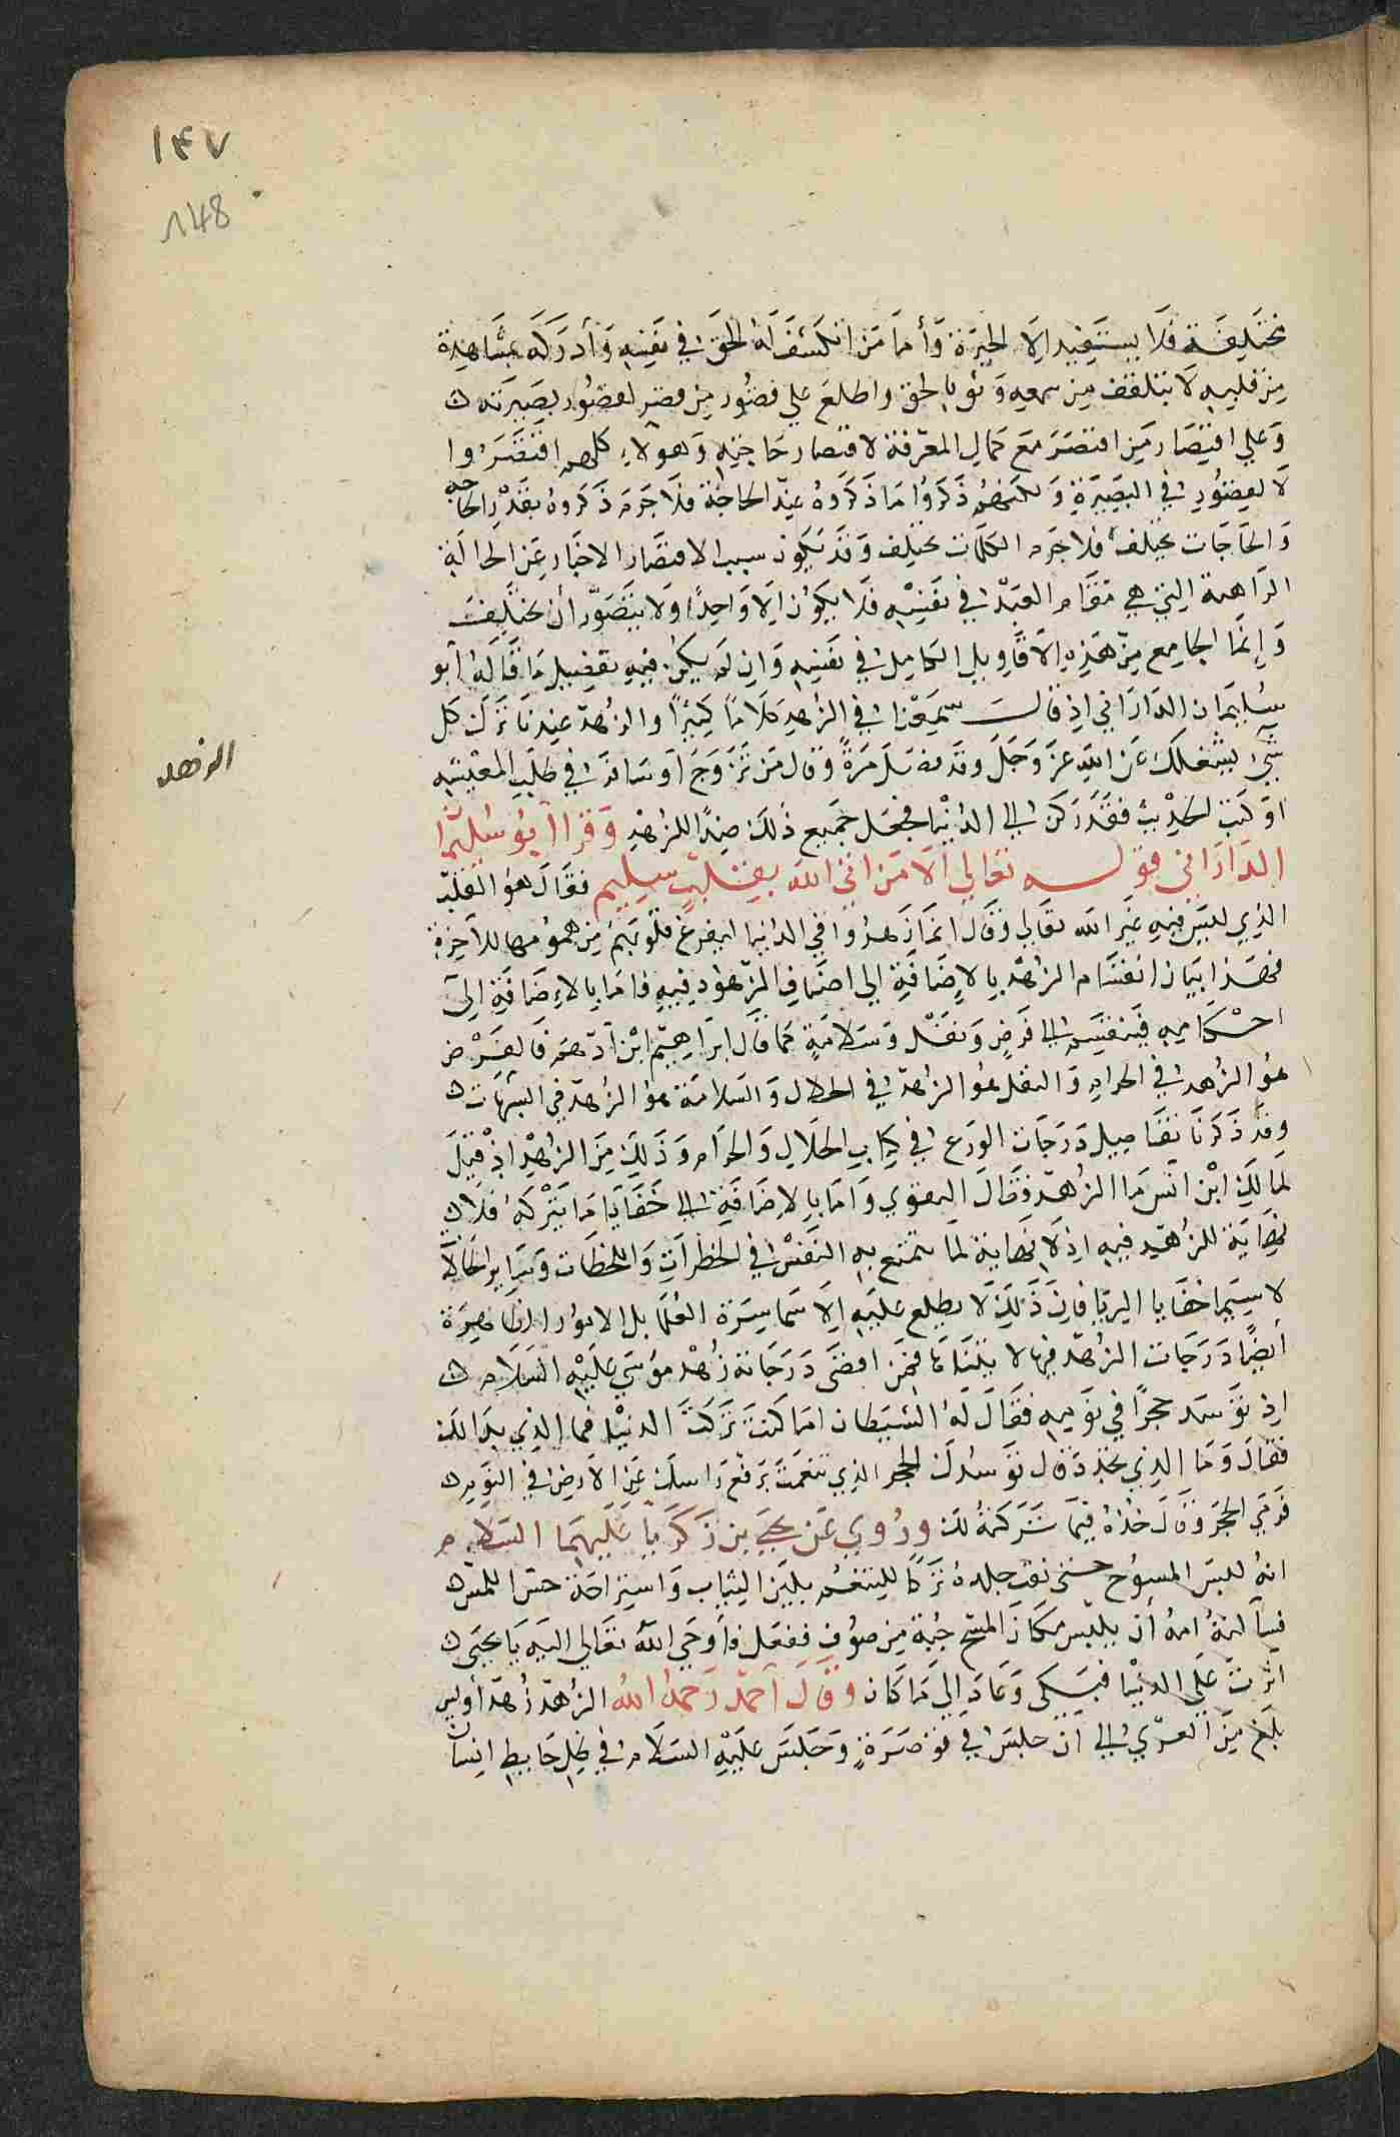 ١٤٧
148
مختلفة فلا يستفيد الا الحيرة وأما من انكشف له الحق في نفسه وأدركه بمشاهدة
من قلبه لا بتلقف من سمعه وثق بالحق واطلع علي قصور من قصر لقصور بصيرته
وعلي اقتصار من اقتصر مع كمال المعرفة لاقتصار حاجته وهولاء كلهم اقتصروا
لا لقصور في البصيرة ولكنهم ذكروا ما ذكروه عند الحاجة فلا جرم ذكروه بقدر الحاجة
والحاجات تختلف فلا جرم الكلمات تختلف وقد يكون سبب الاقتصار الاخبار عن الحالة
الراهنة التي هي مقام العبد في نفسه فلا يكون الا واحدا ولا يتصور أن يختلف
وإنما الجامع من هذه الاقاويل الكامل في نفسه وان لم يكن فيه تفصيل ما قاله أبو
سليمان الداراني اذ قال سمعنا في الزهد كلاما كثيرا والزهد عندنا ترك كل
شئ يشغلك عن الله عز وجل وقد فصل مرة وقال من تزوج أو سافر في طلب المعيشه
او كتب الحديث فقد ركن الي الدنيا فجعل جميع ذلك ضدا للزهد وقرا أبو سليمان
الداراني قوله تعالي الا من اتي الله بقلب سليم فقال هو القلب
الذي ليس فيه غير الله تعالي وقال انما زهدوا في الدنيا ليفرغ قلوبهم من همومها للآخرة
فهذا بيان انقسام الزهد بالإضافة الي اصناف المزهود فيه فاما بالإضافة الى
احكامه فينقسم الي فرض ونفل وسلامة كما قال ابراهيم ابن أدهم فالفرض
هو الزهد في الحرام والنفل هو الزهد في الحلال والسلامة هو الزهد في الشبهات
وقد ذكرنا تفاصيل درجات الورع في كتاب الحلال والحرام وذلك من الزهد اذ قيل
لمالك ابن انس ما الزهد فقال التقوي وأما بالاضافة الي خفايا ما يتركه فلا
نهاية للزهد فيه اذ لا نهاية لما تتمتع به النفس في الخطرات واللحظات وساير الحالا
لا سيما خفايا الريا فان ذلك لا يطلع عليه إلا سماسرة العلما بل الامور الظاهرة
أيضا درجات الزهد فيها لا يتناها فمن اقصى درجاته زهد موسي عليه السلام
اذ توسد حجرا في نومه فقال له الشيطان اما كنت تركت الدنيا فما الذي بدا لك
فقال وما الذي تجدد قال توسدك الحجر الذي تنعمت برفع راسك عن الارض في النوم
فرمي الحجر وقال خذه فيما تركته لك وروي عن يحيي بن زكريا عليهما السلام
انه لبس المسوح حتى نقب جلده تركا للتنعم بلين الثياب واستراحة حس اللمس
فسألته امه أن يلبس مكان المسح جبة من صوف ففعل فأوحي الله تعالي اليه يا يحيى
اثرت علي الدنيا فبكى وعاد الي ما كان وقال أحمد رحمه الله الزهد زهد أويس
بلغ من العري الي أن جلس في قوصرة وجلس عليه السلام في ظل حايط انسان
الزهد